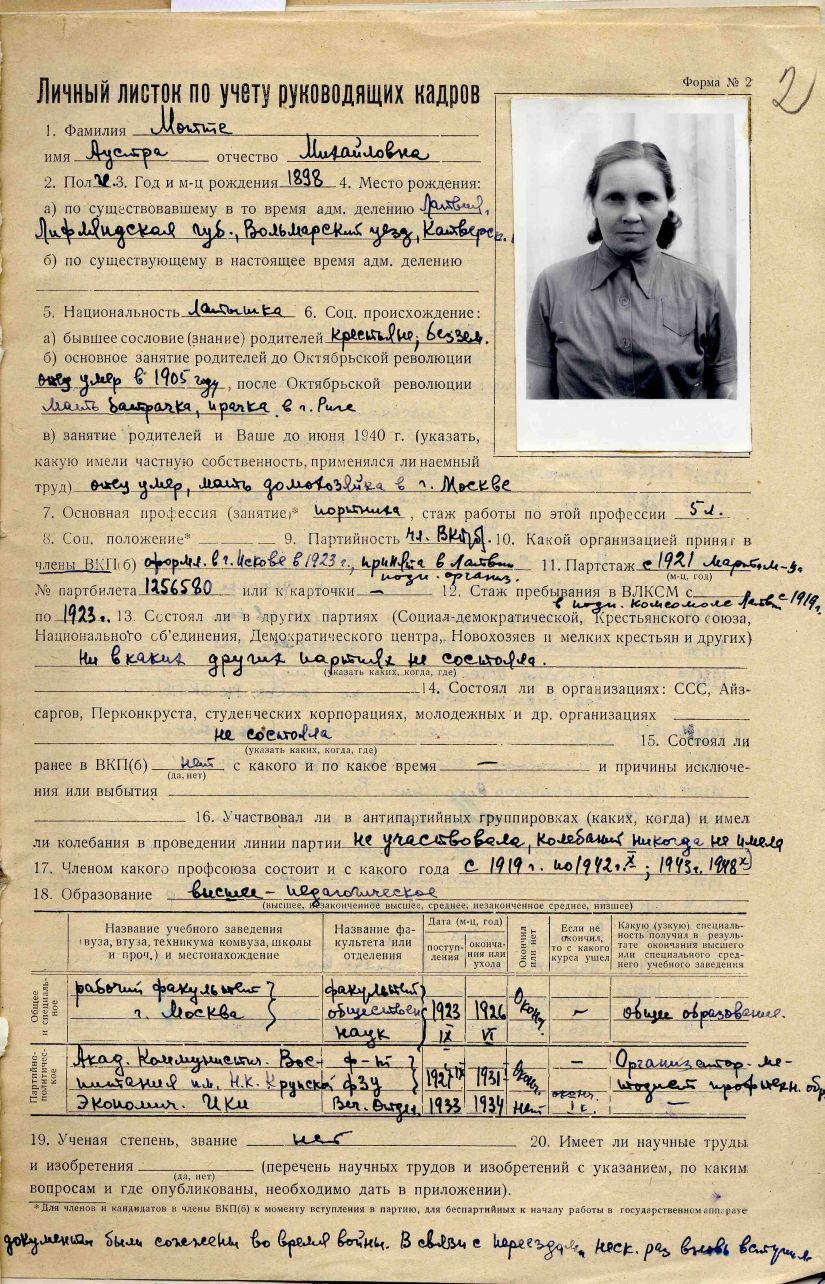 Форма № 2
2
Личный листок по учету руководящих кадров
1. Фамилия Мотте
имя Аустра отчество Михайловна
2. Пол ж. 3. Год и м-ц рождения 1898 4. Место рождения:
а) по существовавшему в то время адм. делению Латвия,
Лифляндская губ., Вольмарский уезд, Катверск.
б) по существующему в настоящее время адм. делению
5. Национальность латышка 6. Соц. происхождение:
а) бывшее сословие (звание) родителей крестьяне; беззем.
б) основное занятие родителей до Октябрьской революции
отец умер в 1905 году, после Октябрьской революции
мать батрачка, прачка в г. Риге
в) занятие родителей и Ваше до июня 1940 г. (указать,
какую имели частную собственность, применялся ли наемный
труд) отец умер, мать домохозяйка в г. Москве
7. Основная профессия (занятие)* портниха, стаж работы по этой профессии 5 л.
8. Соц. положение* 9. Партийность чл. ВКП(б). 10. Какой организацией принят в
члены ВКП(б) оформл. в г. Пскове в 1923 г., принята в Латвии 11. Партстаж с 1921 март м-ц
подп. организ. (м-ц, год)
№ партбилета 1256580 или к карточки — 12. Стаж пребывания в ВЛКСМ с с 1919г.
в подп. комсомоле Латв.
по 1923 г. 13. Состоял ли в других партиях (Социал-демократической, Крестьянского союза,
Национального об'единения, Демократического центра, Новохозяев и мелких крестьян и других)
Ни в каких других партиях не состояла.
(указать каких, когда, где)
14. Состоял ли в организациях: ССС, Айз-
саргов, Перконкруста, студенческих корпорациях, молодежных и др. организациях
не состояла 15. Состоял ли
(указать каких, когда, где)
ранее в ВКП(б) нет с какого и по какое время — и причины исключе-
(да, нет)
ния или выбытия
16. Участвовал ли в антипартийных группировках (каких, когда) и имел
ли колебания в проведении линии партии не участвовала, колебаний никогда не имела
17. Членом какого профсоюза состоит и с какого года с 1919 г. по 1942 г. х); 1943 г. 1948 х)
18. Образование высшее - педагогическое
(высшее, незаконченное высшее, среднее, незаконченное среднее, низшее)
Название учебного заведения (вуза, втуза, техникума комвуза, школы и проч.) и местонахождение
Название факультета или отделения
Дата (м-ц, год)
поступления
окончания или ухода
Окончил или нет
Если не окончил, то с какого курса ушел
Какую (узкую) специальность получил в результате окончания высшего или специального среднего учебного заведения
Общее и специальное
рабочий факультет факультет
г. Москва обществен. 1923 1926 Оконч. — общее образование.
наук IX VI
Партийно-политическое
Акад. Коммунистич. Вос- ф-т — Организатор-ме-
питания им. Н.К. Крупской ФЗУ 1931 Оконч. тодист профтехн. обр
Экономич. ИКП Веч. Отдел. 1933 1934 нет оконч. I к. —
19. Ученая степень, звание нет 20. Имеет ли научные труды
и изобретения (перечень научных трудов и изобретений с указанием, по каким
(да, нет)
вопросам и где опубликованы, необходимо дать в приложении).
* Для членов и кандидатов в члены ВКП(б) к моменту вступления в партию, для беспартийных к началу работы в государственном аппарате
документы были сожжены во время войны. В связи с переездам, неск. раз вновь вступил.